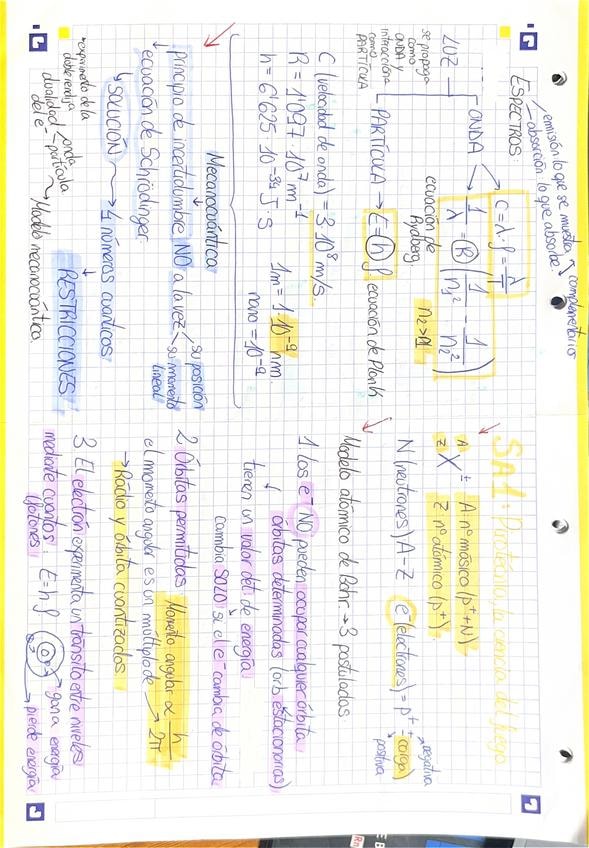 SA1: Pirotécnia, la ciencia del fuego
A
Z X ±
A: nº másico (p⁺+N)
Z nº atómico (p⁺)
N (neutrones) A-Z
e⁻ (electrones) = p⁺ ± carga
negativa
positiva
Modelo atómico de Bohr → 3 postulados.
1 Los e⁻ NO pueden ocupar cualquier órbita
órbitas determinadas (orb estacionarias)
tienen un valor det. de energía
cambia SOLO si el e⁻ cambia de órbita
2 Órbitas permitidas
Momento angular α h/2π
el momento angular es un múltiplo de
→ Radio y órbita cuantizados
3 El electrón experimenta un tránsito entre niveles
mediante cuantos: E=hf
(fotones)
gana energía
pierde energía
ESPECTROS:
emisión: lo que se muestra
absorción: lo que absorbe
complementario
LUZ
se propaga
como
ONDA y
interacciona
como
PARTÍCULA
ONDA
c = λ · f = λ/T
1/λ = R (1/n₁² - 1/n₂²)
ecuación de
Rydberg.
n₂>n1
PARTÍCULA → E=hf ecuación de Plank
C (velocidad de onda) = 3 10⁸ m/s
R = 1'097 · 10⁷ m⁻¹
h = 6'625 10⁻³⁴ J·s
1m = 1 10⁻⁹ nm.
nano = 10⁻⁹
Mecanocuántica
principio de incertidumbre, NO a la vez
su posición
su momento
lineal
ecuación de Schrödinger.
SOLUCIÓN → 4 números cuánticos
RESTRICCIONES
experimento de la
doble rendija
dualidad
del e⁻
onda
partícula
→ Modelo mecanocuántica